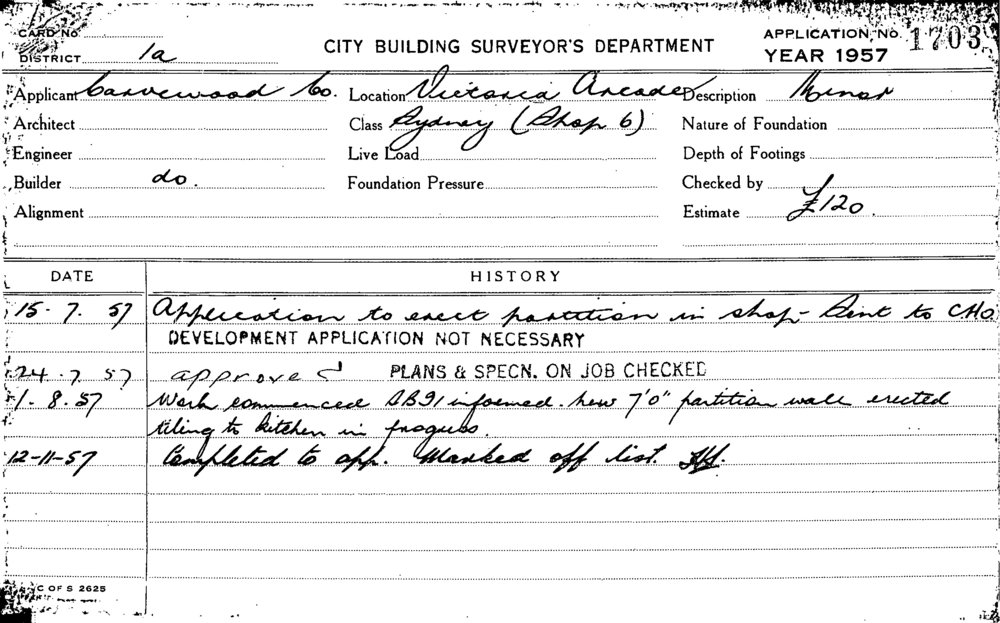 CARD No.
DISTRICT 1a
CITY BUILDING SURVEYOR'S DEPARTMENT
APPLICATION, No. 1703
YEAR 1957
Applicant Carvewood Co. Location Victoria Arcade Description Minor
Architect Class Sydney (Shop 6) Nature of Foundation
Engineer Live Load Depth of Footings
Builder do. Foundation Pressure Checked by
Alignment Estimate £120.
DATE HISTORY
15. 7. 57 Application to erect partition in shop - Sent to CHO.
DEVELOPMENT APPLICATION NOT NECESSARY
24. 7 57 approved PLANS & SPECN. ON JOB CHECKED
1. 8. 57 Work commenced informed. New 7'0" partition wall erected
tiling to kitchen in progress.
12-11-57 Completed to app. Marked off list.
C OF S 2625